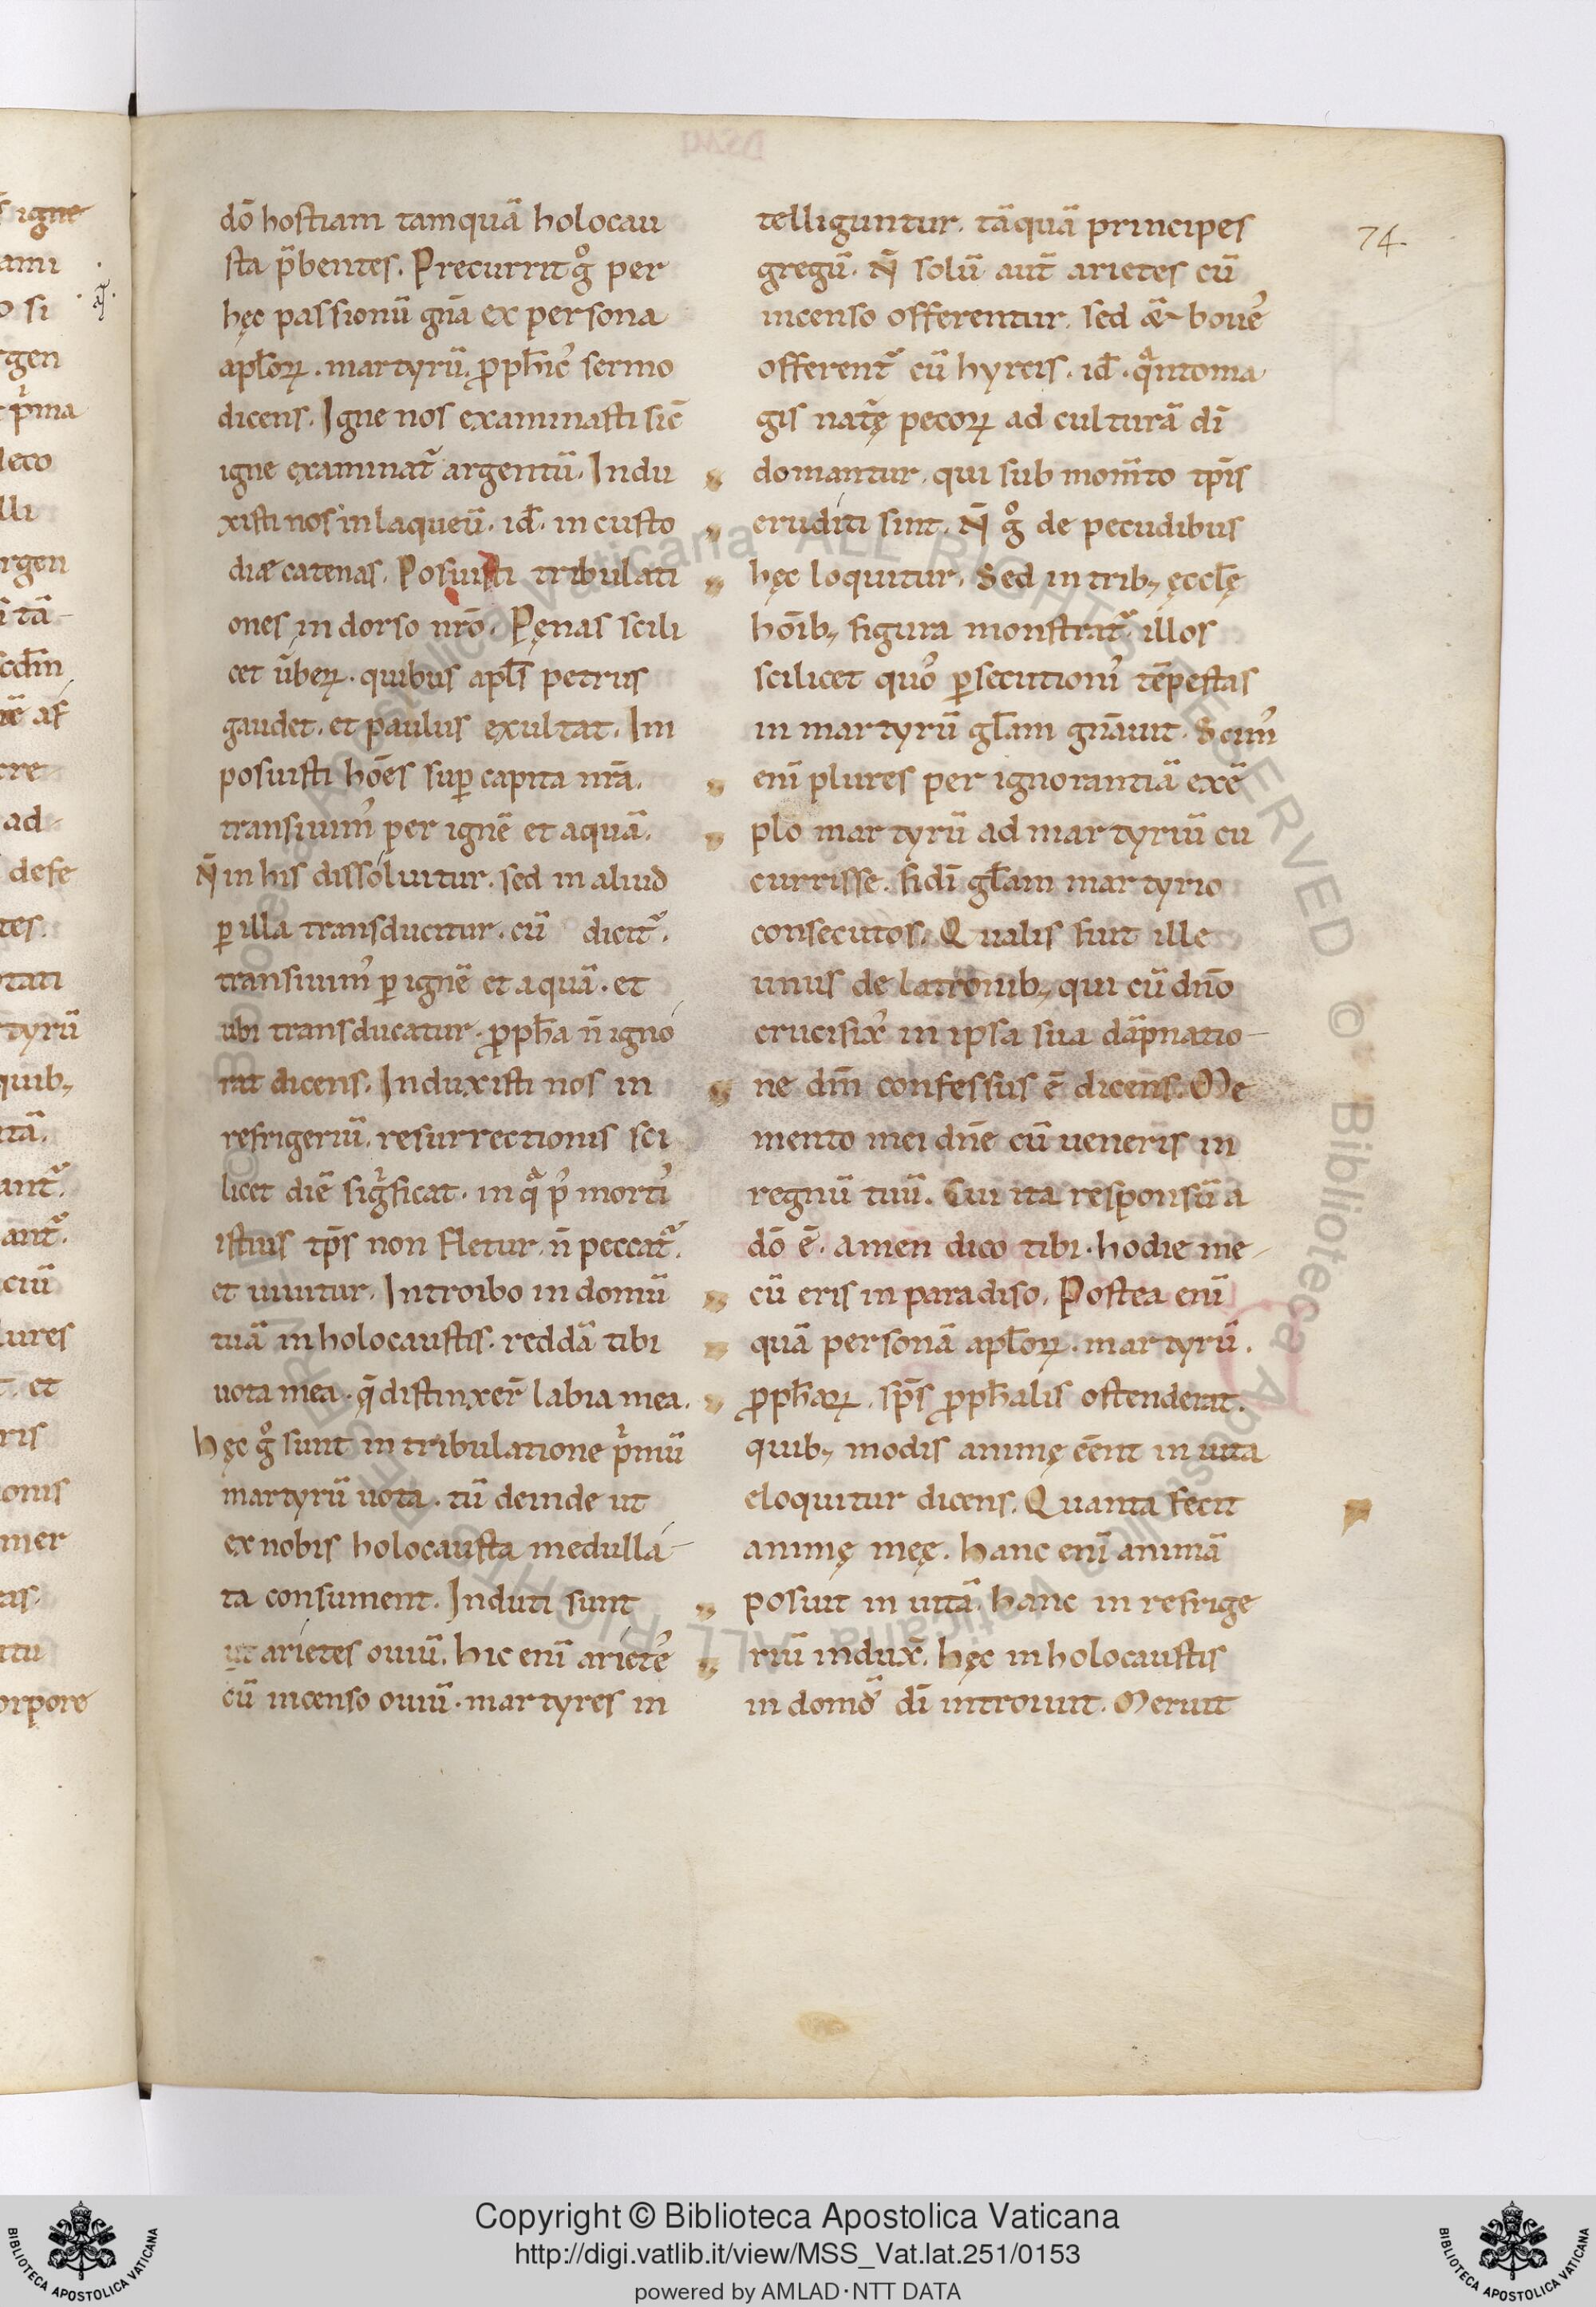 74.
dō hostiam tamquā holocau
sta p̄bentes. Precurrit gͦ per
hęc passionū gn̄a ex persona
apl̄oꝝ. martyrū. ꝓph̄ic᾽ sermo
dicens. Igne nos examinasti sic̄
igne examinat᷑ argentū. Indu
xisti nos in laqueū. id̄. in custo
diæ catenas. Posuisti tribulati
ones in dorso nr̄o. Pęnas scili
cet ūbeꝝ. quibus apl̄s petrus
gaudet. et paulus exultat. Im
posuisti hōēs suꝑ capita nr̄a.
transiuim᾽ per ignē et aquā.
N̄ in his dissoluitur. sed in aliud
ꝑ illa transducitur. cū dicit᷑.
transiuim᾽ ꝑ ignē et aquā. et
ubi transducatur. ꝓph̄a n̄ igno
rat dicens. Induxisti nos in
refrigeriū. resurrectionis sci
licet diē sigͥficat. in qͣ p᾽ morti᾽
istius tp̄s non fletur. n̄ peccat᷑.
et uiuitur. Introibo in domū
tuā in holocaustis. reddā tibi
uota mea. q̄ distinxer̄ labia mea.
hęc gͦ sunt in tribulatione pͥmū
martyrū uota. tū deinde ut
ex nobis holocausta medulla-
ta consument. Induti sunt
ut arietes ouiū. hic enī ariete᾽
cū incenso ouiū. martyres in
telliguntur. tāquā principes
gregū. N̄ solū aut̄ arietes cū
incenso offerentur. sed ǣ boue᾽
offerent᷑ cū hyrcis. id̄. qͣntoma
gis nat᷑ę pecoꝝ ad culturā dī
domantur. qui sub mom̄to tp̄is
eruditi sint. N̄ gͦ de pecudibus
hęc loquitur. Sed in trib; ęccl̄ę
hōīb; figura monstrat᷑. illos
scilicet quo᾽ ꝑsecutioni᾽ tēpestas
in martyrū gl̄am gn̄auit. Scim᾽
enī plures per ignorantiā exē
plo martyrū ad martyriū cu
currisse. fidī gl̄am martyrio
consecutos. Qualis fuit ille
unus de latronib; qui cū dn̄o
crucifix᾽ in ipsa sua dāpnatio-
ne dm̄ confessus ē dicens. Me
mento mei dn̄e cū ueneris in
regnū tuū. Cui ita responsū a
dō ē. amen dico tibi. hodie me-
cū eris in paradiso. Postea enī
quā personā apl̄oꝝ. martyrū.
ꝓph̄aꝝ. sp̄s ꝓph̄alis ostenderat.
quib; modis animę ēēnt in uita
eloquitur dicens. Quanta fecit
animę męę. hanc enī animā
posuit in uitā. hanc in refrige
riū indux̄. hęc in holocaustis
in domo᾽ dī introiuit. Meruit
Copyright © Biblioteca Apostolica Vaticana
http://digi.vatlib.it/view/MSS_Vat.lat.251/0153
powered by AMLAD·NTT DATA